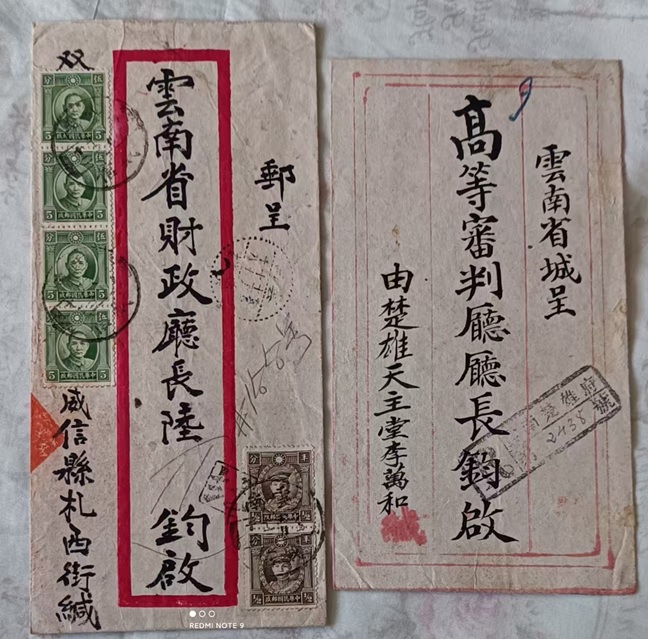 双
郵呈
雲南省財政廳長陸 鈞啟
威信縣札西街緘
伍
分
5
5
中華民國郵政
伍
分
5
5
中華民國郵政
伍
分
5
5
中華民國郵政
伍
分
5
5
中華民國郵政
半
分
1/2
1/2
中華民國郵政
半
分
1/2
1/2
中華民國郵政
雲南省城呈
高等審判廳廳長鈞啟
由楚雄天主堂李萬和緘
2438
號
REDMI NOTE 9